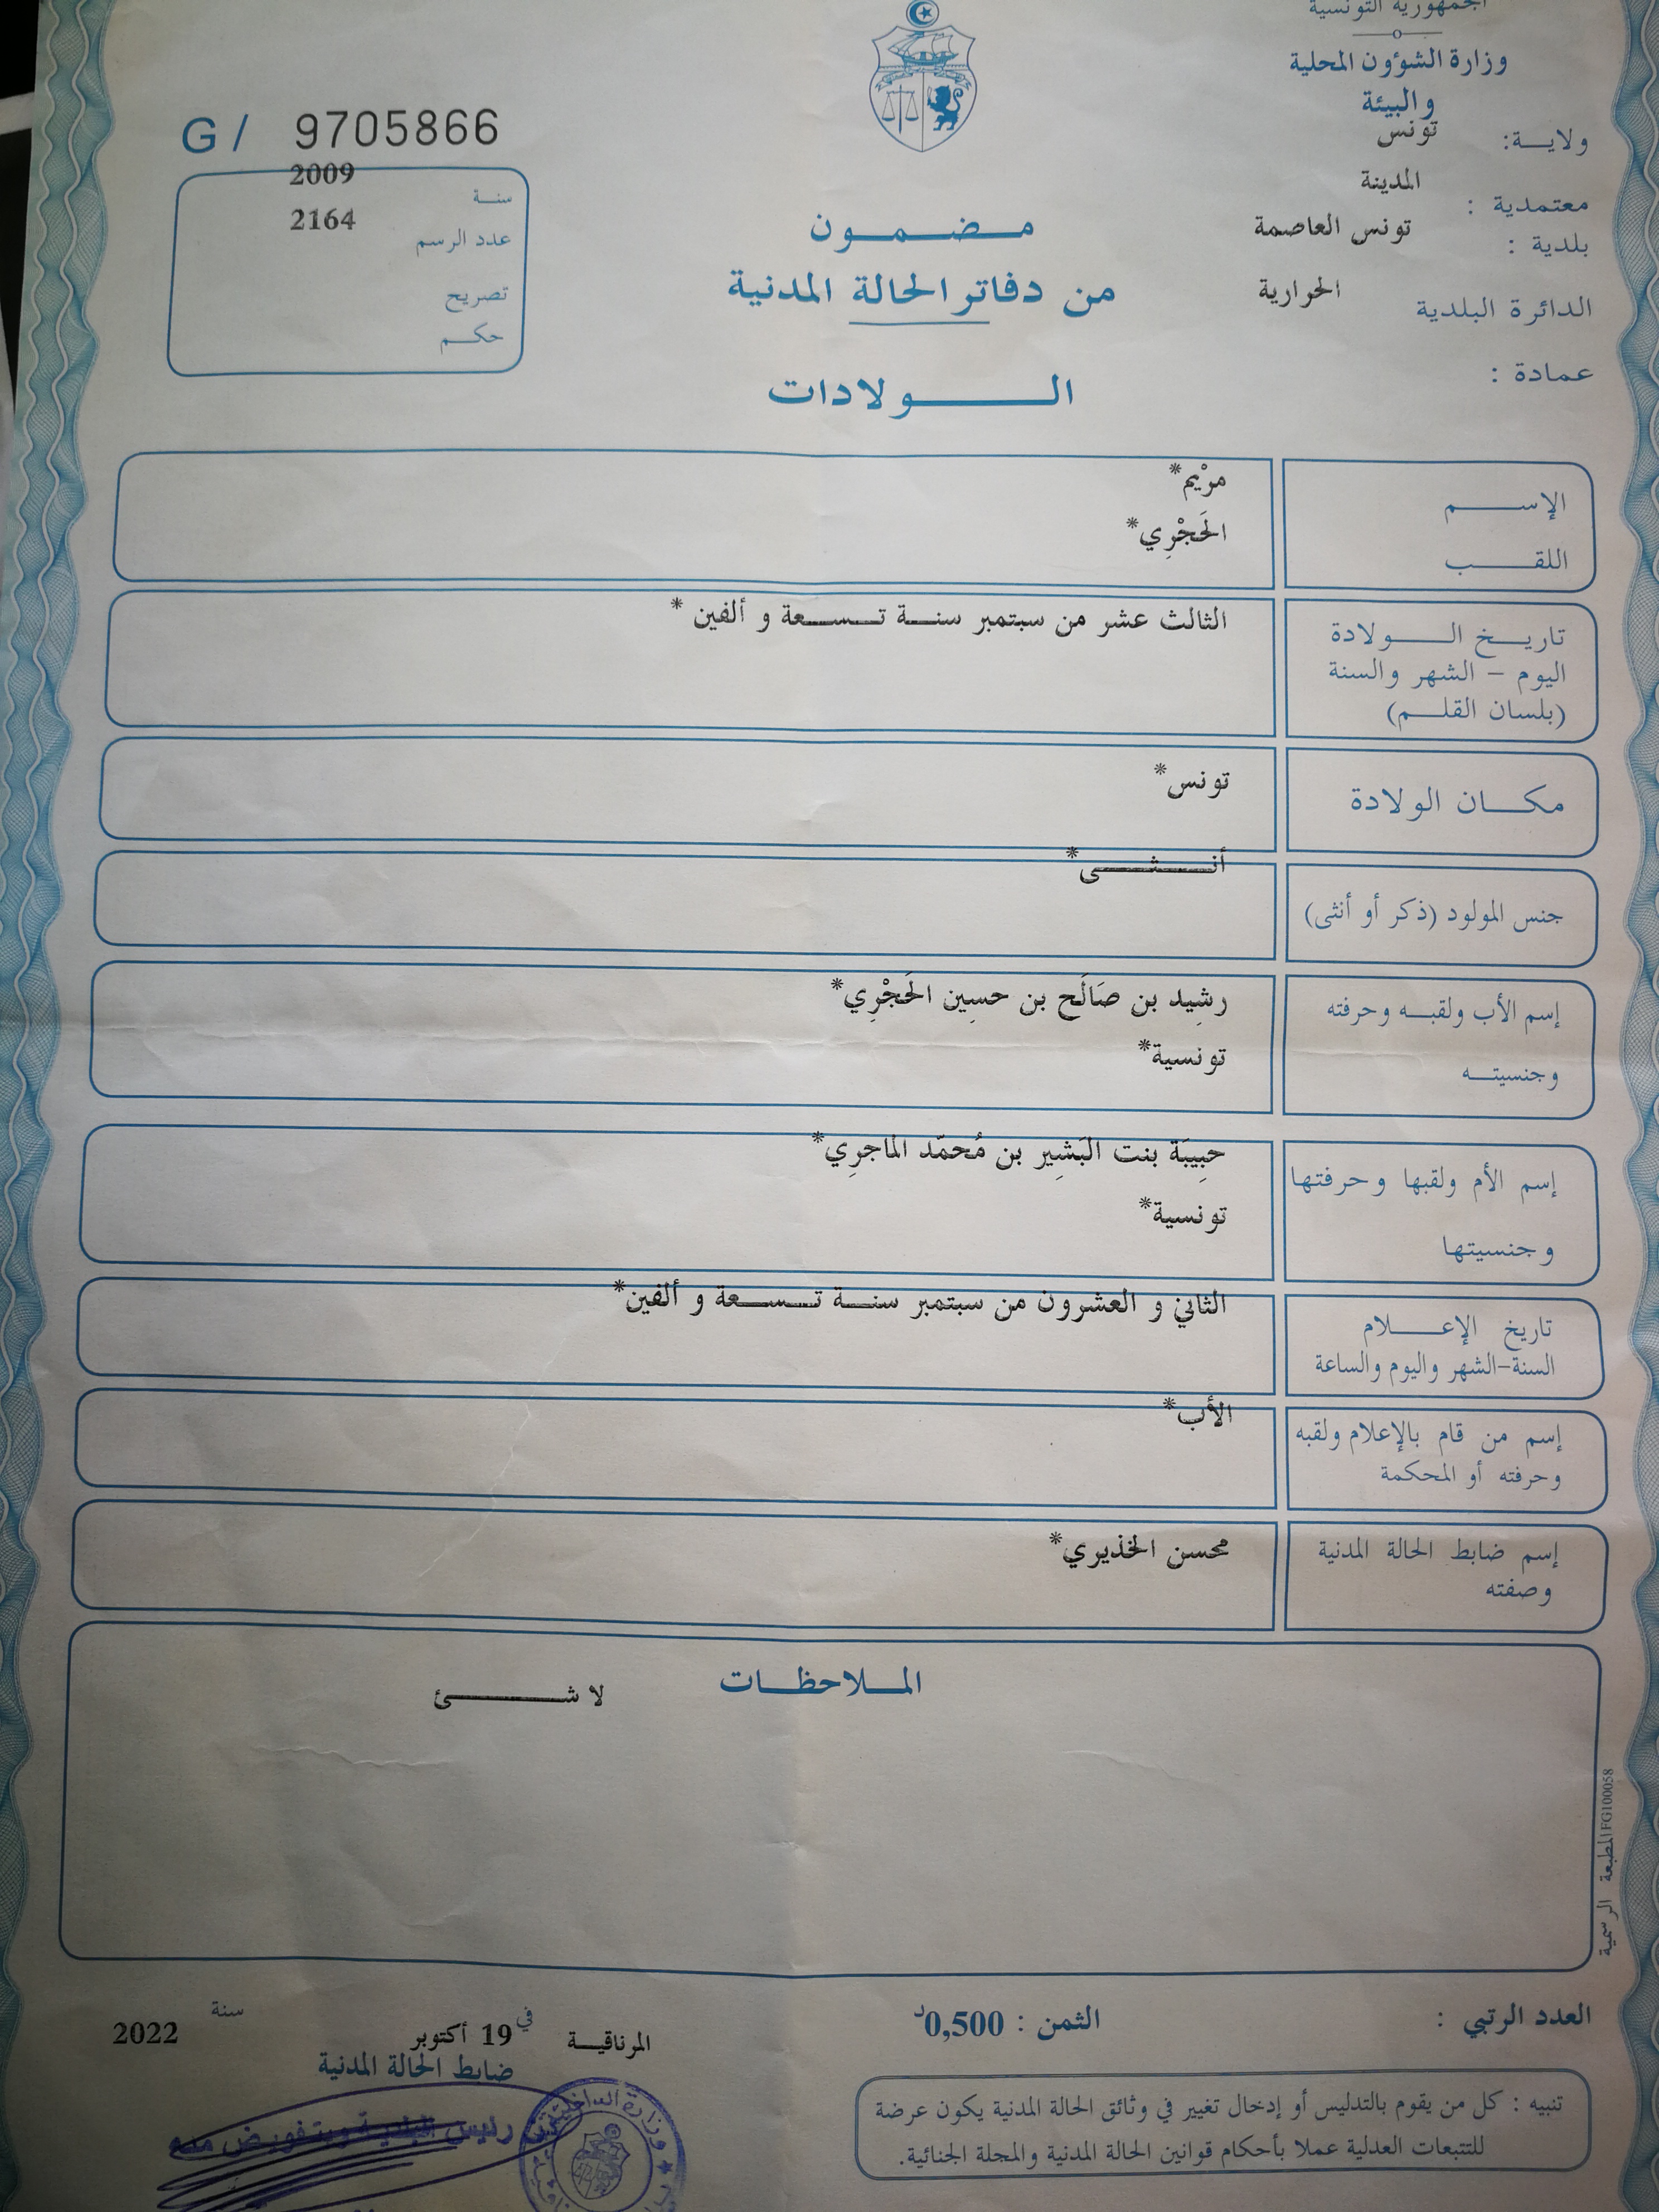 الجمهورية التونسية
وزارة الشؤون المحلية
والبيئة
ولاية: تونس
معتمدية : المدينة
بلدية : تونس العاصمة
الدائرة البلدية الحرارية
عمادة :
G / 9705866
سنة 2009
عدد الرسم 2164
تصريح
حكم
مضمون
من دفاتر الحالة المدنية
الولادات
الإسم مرْيم*
اللقب الحَجْرِي*
تاريخ الولادة الثالث عشر من سبتمبر سنة تسعة و ألفين *
اليوم - الشهر والسنة
(بلسان القلم)
مكان الولادة تونس*
جنس المولود (ذكر أو أنثى) أنثى*
إسم الأب ولقبه وحرفته رشِيد بن صَالَح بن حسِين الحَجْرِي*
وجنسيته تونسية*
إسم الأم ولقبها وحرفتها حبِيبَة بنت البَشِير بن مُحمّد الماجرِي*
وجنسيتها تونسية*
تاريخ الإعلام الثاني و العشرون من سبتمبر سنة تسعة و ألفين*
السنة-الشهر واليوم والساعة
إسم من قام بالإعلام ولقبه الأب*
وحرفته أو المحكمة
إسم ضابط الحالة المدنية محسن الخذيري*
وصفته
الملاحظات
لا شئ
المطبعة الرسمية FG100058
العدد الرتبي :
الثمن : 0,500د
المرناقية في 19 أكتوبر سنة 2022
ضابط الحالة المدنية
عن رئيس البلدية وبتفويض منه
وزارة الداخلية
تنبيه : كل من يقوم بالتدليس أو إدخال تغيير في وثائق الحالة المدنية يكون عرضة
للتتبعات العدلية عملا بأحكام قوانين الحالة المدنية والمجلة الجنائية.